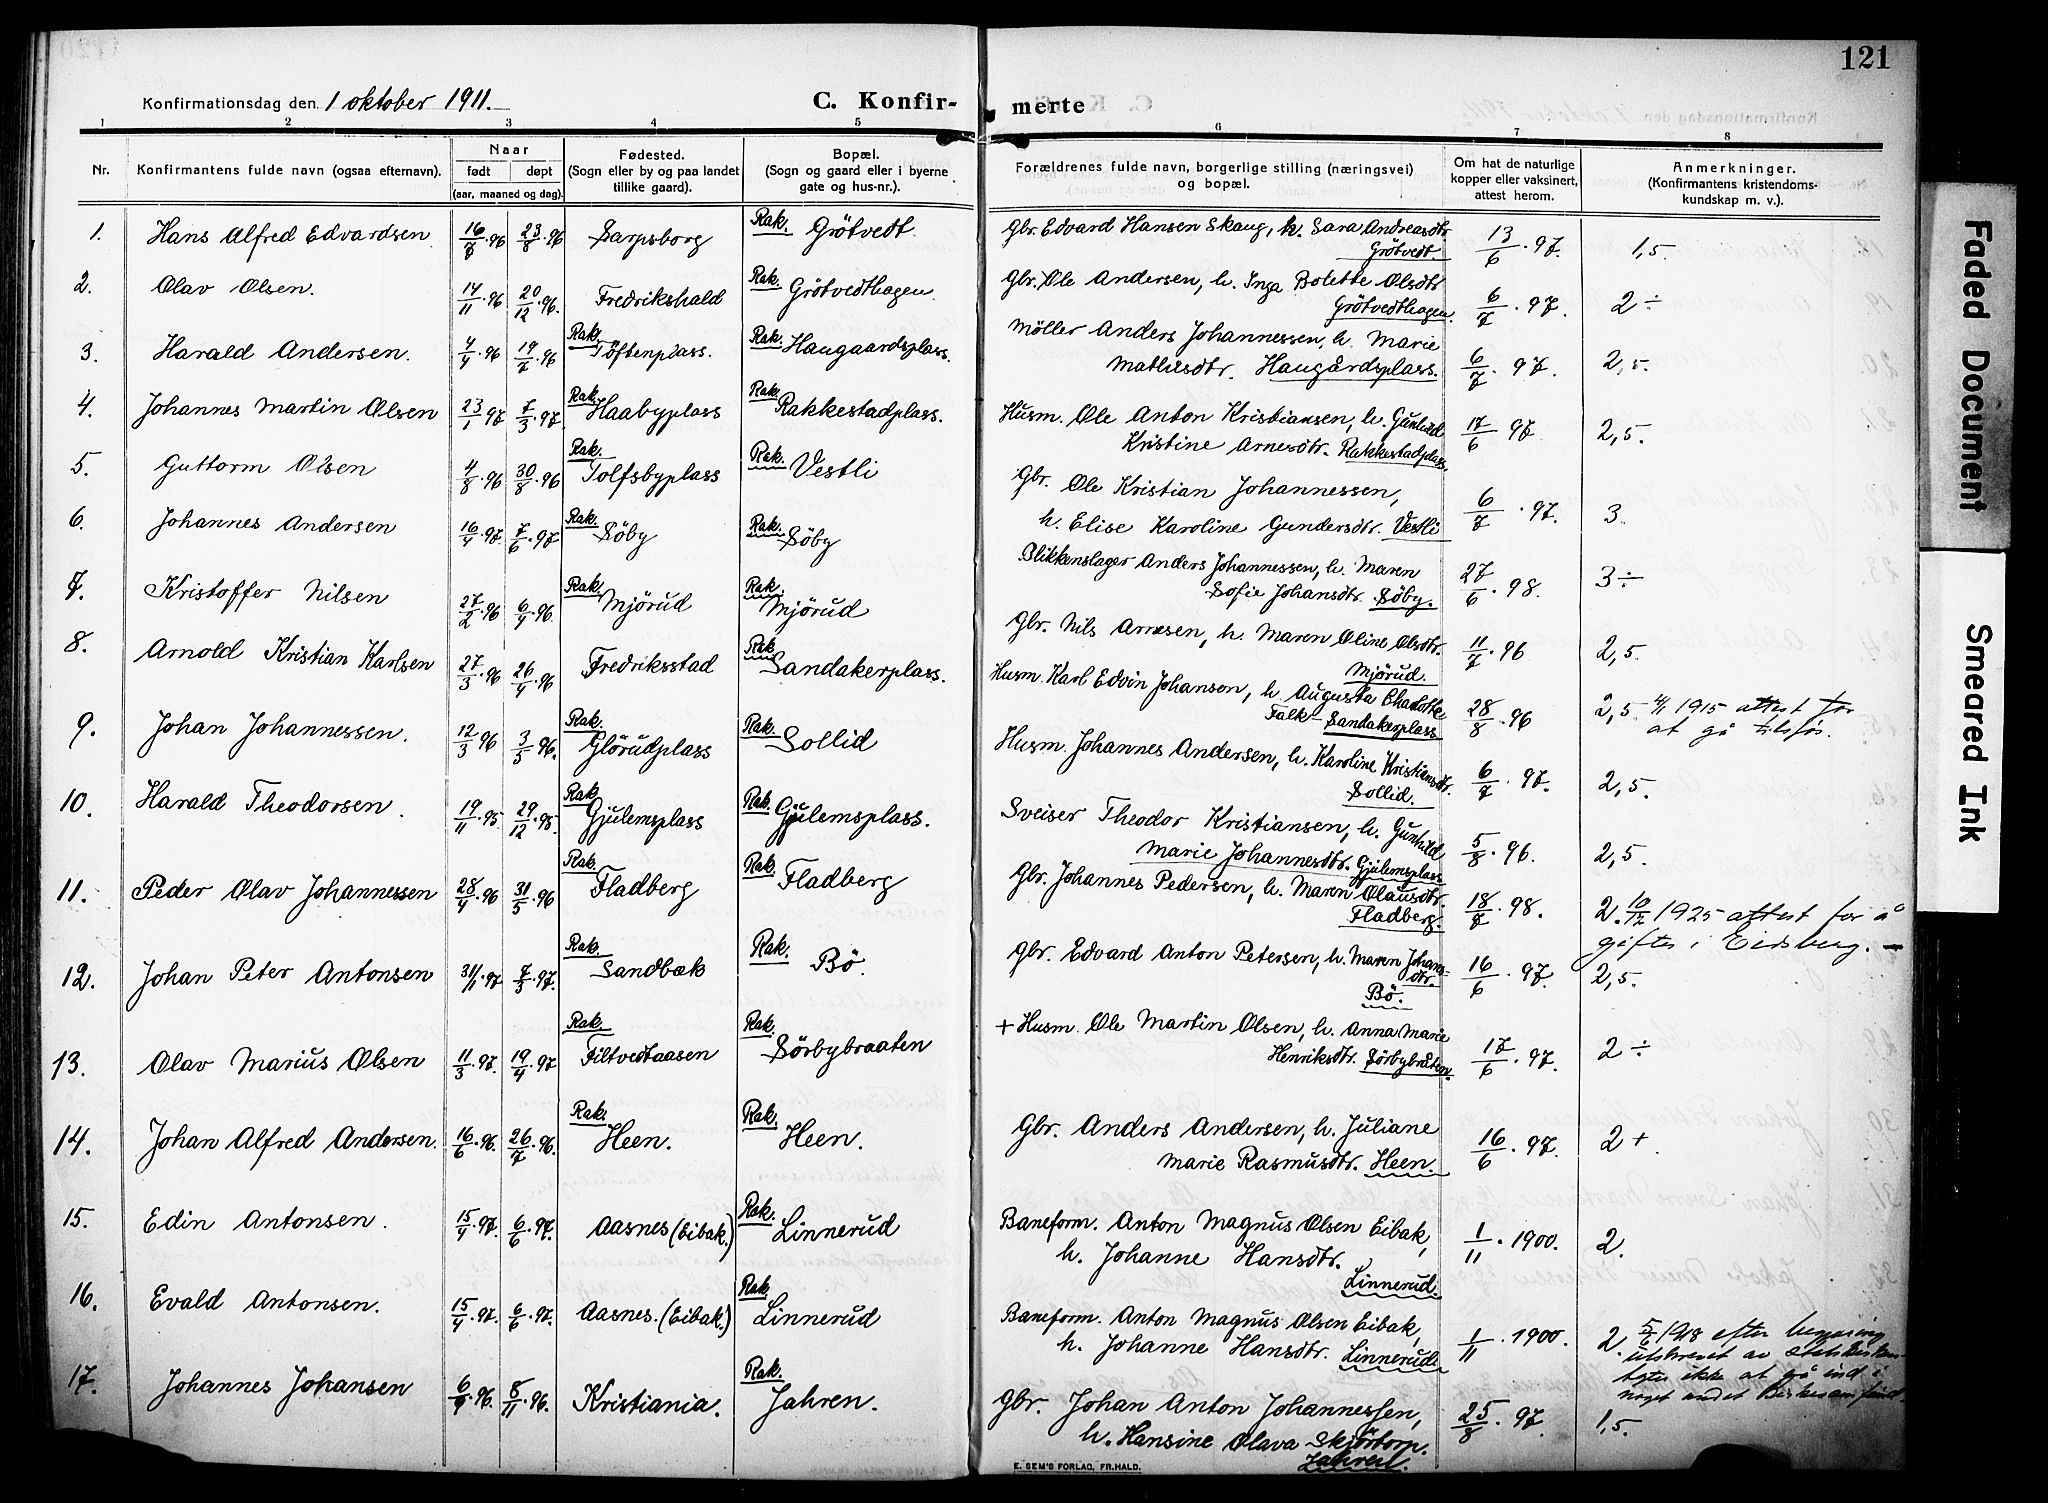 121
Konfirmationsdag den 1 oktober 1911.
C. Konfirmerte
1 2 3 4 5 6 7 8
Nr.
Konfirmantens fulde navn (ogsaa efternavn).
Naar
født døpt
(aar, maaned og dag).
Fødested.
(Sogn eller by og paa landet
tillike gaard).
Bopæl.
(Sogn og gaard eller i byerne
gate og hus-nr.).
Forældrenes fulde navn, borgerlige stilling (næringsvei)
og bopæl.
Om hat de naturlige
kopper eller vaksinert,
attest herom.
Anmerkninger.
(Konfirmantens kristendoms-
kundskap m. v.).
1. Hans Alfred Edvardsen 16/7·96 23/8·96 Sarpsborg Rak. Grötvedt Gbr. Edvard Hansen Skaug, h. Sara Andreasdtr.
Grötvedt 13/6·97. 1,5.
2. Olav Olsen. 14/11·96 20/12·96. Fredrikshald Rak. Grötvedthagen. Gbr. Ole Andersen, h. Inga Bolette Olsdtr.
Grötvedthagen. 6/7·97. 2÷
3. Harald Andersen. 4/4·96 19/7·96 Rak. Töftenplass. Rak. Haugaardsplass. Möller Anders Johannessen, h. Marie
Mathisdtr. Haugårdsplass. 6/7·97. 2,5.
4. Johannes Martin Olsen 23/1·97 7/3·97. Rak. Haabyplass Rak. Rakkestadplass. Husm. Ole Anton Kristiansen, h. Gunhild
Kristine Arnesdtr. Rakkestadplass. 17/6·97. 2,5.
5. Guttorm Olsen 4/8·96 30/8·96 Rak. Tolfsbyplass Rak. Vestli Gbr. Ole Kristian Johannessen,
h. Elise Karoline Gundersdtr. Vestli 6/7·97. 3.
6. Johannes Andersen 16/4·97. 7/6·97 Rak. Söby Rak. Söby Blikkenslager Anders Johannessen, h. Maren
Sofie Johansdtr. Söby. 27/6·98. 3÷
7. Kristoffer Nilsen 27/2·96 6/4·96. Rak. Mjörud Rak. Mjörud Gbr. Nils Arnesen, h. Maren Oline Olsdtr.
Mjörud. 11/7·96 2,5.
8. Arnold Kristian Karlsen 27/3·96 26/4·96 Fredriksstad Rak. Sandakerplass. Husm. Karl Edvin Johansen, h. Augusta Charlotte
Falk - Sandakerplass 28/8·96 2,5 1915 attest for
at gå tilsjøs.
9. Johan Johannessen. 12/3 96 3/5·96. Rak. Glörudplass Rak. Sollid Husm. Johannes Andersen, h. Karoline Kristiansdtr.
Sollid. 6/7·97. 2,5.
10. Harald Theodorsen. 19/11·95 29/12·95. Rak. Gjulemsplass Rak. Gjulemsplass. Sveiser Theodor Kristiansen, h. Gunhild
Marie Johannesdtr. Gjulemsplass 5/8·96. 2,5.
11. Peder Olav Johannessen 28/4·96 31/5·96 Rak. Fladberg Rak. Fladberg Gbr. Johannes Pedersen, h. Maren Olausdtr.
Fladberg. 18/7·98. 2. 10/12 1925 attest for å
giftes i Eidsberg. -
12. Johan Peter Antonsen 31/1·97 7/3·97. Rak. Sandbæk Rak. Bö. Gbr. Edvard Anton Petersen, h. Maren Johans-
dtr.
Bö. 16/6·97. 2,5.
13. Olav Marius Olsen 11/3·97. 19/4·97 Rak. Filtvedtaasen Rak. Sörbybraaten + Husm. Ole Martin Olsen, h. Anna Marie
Henriksdtr. Sörbybråten. 17/6·97. 2÷
14. Johan Alfred Andersen. 16/6·96. 26/7·96. Rak. Heen. Rak. Heen. Gbr. Anders Andersen, h. Juliane
Marie Rasmusdtr. Heen. 16/6·97. 2+.
15. Edin Antonsen. 15/4·97. 6/6·97. Aasnes (Eibak.) Rak. Linnerud Baneform. Anton Magnus Olsen Eibak,
h. Johanne Hansdtr.
Linnerud. 1/11·1900. 2.
16. Evald Antonsen. 15/4·97. 6/6·97. Aasnes. (Eibak.) Rak. Linnerud Baneform. Anton Magnus Olsen Eibak,
h. Johanne Hansdtr. Linnerud. 1/11·1900. 2. 5/6 1918 efter begjæring
utskrevet av statskirken
agter ikke at gå ind i
noget andet kirkesamfund.
17. Johannes Johansen 6/9·96. 8/11·96. Kristiania. Rak. Jahren. Gbr. Johan Anton Johannessen,
h. Hansine Olava Skjörtorp.
Jahren. 25/8·97. 1,5.
E. SEM'S FORLAG, FR.HALD.
Faded Document
Smeared Ink